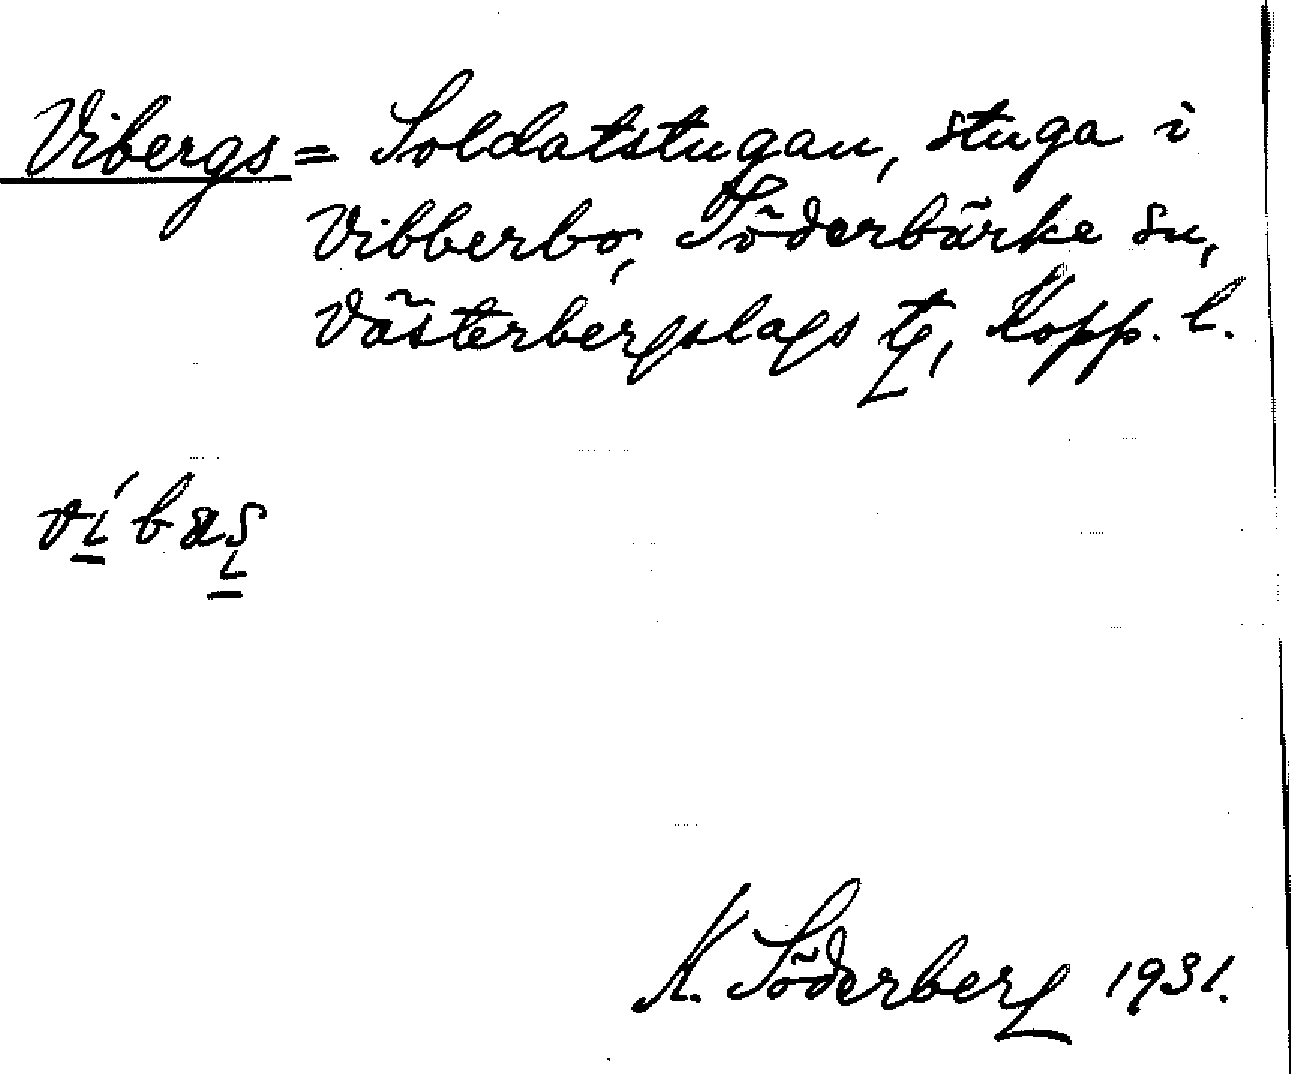 Vibergs = Soldatstugan, stuga i
Vibberbo, Söderbärke sn,
Västerbergslags tg, Kopp. l.
víbas
K. Söderberg 1931.